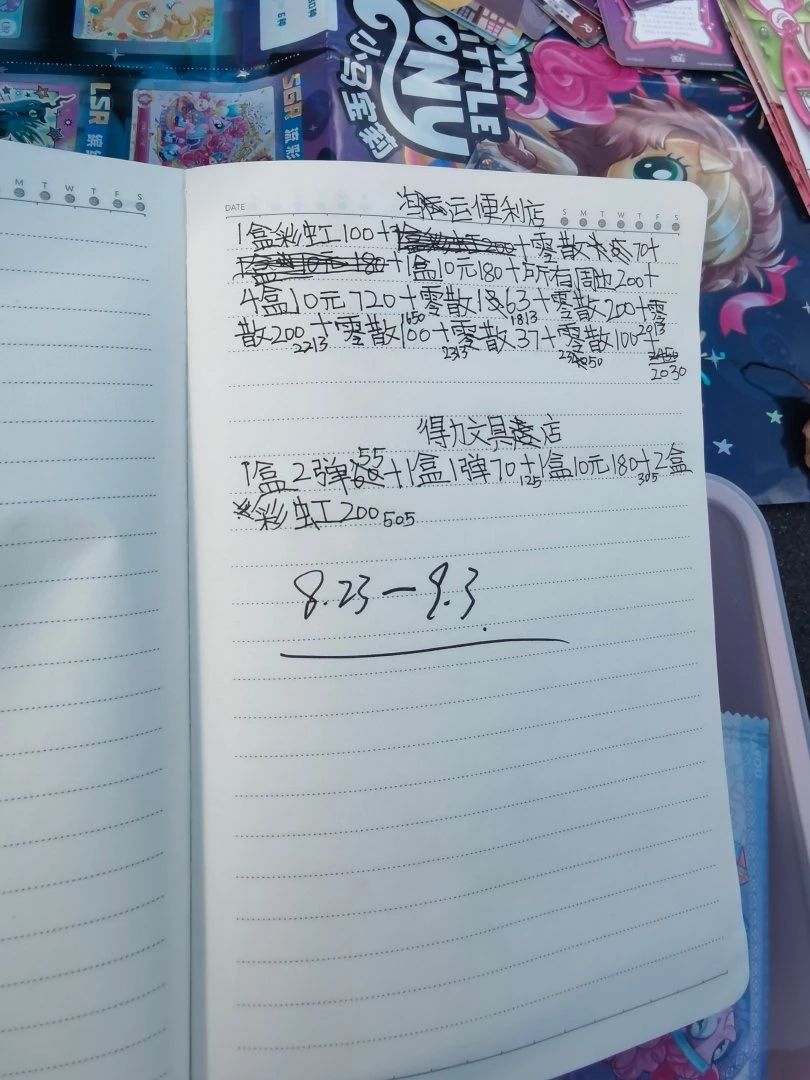 MY
LITTLE
PONY
小马宝莉
SGR
LSR
M T W T F S
DATE
S M T W T F S
运便利店
1盒彩虹100+1盒彩虹200+零散70+
1盒10元180+1盒10元180+所有周边200+
4盒10元720+零散1863+零散200+零
650 1813 2013
散200+零散100+零散37+零散100+
2213 2313 2350
2030
得力文具店
1盒2弹55+1盒1弹70+1盒10元180+2盒
125 305
彩虹200 505
8.23-9.3